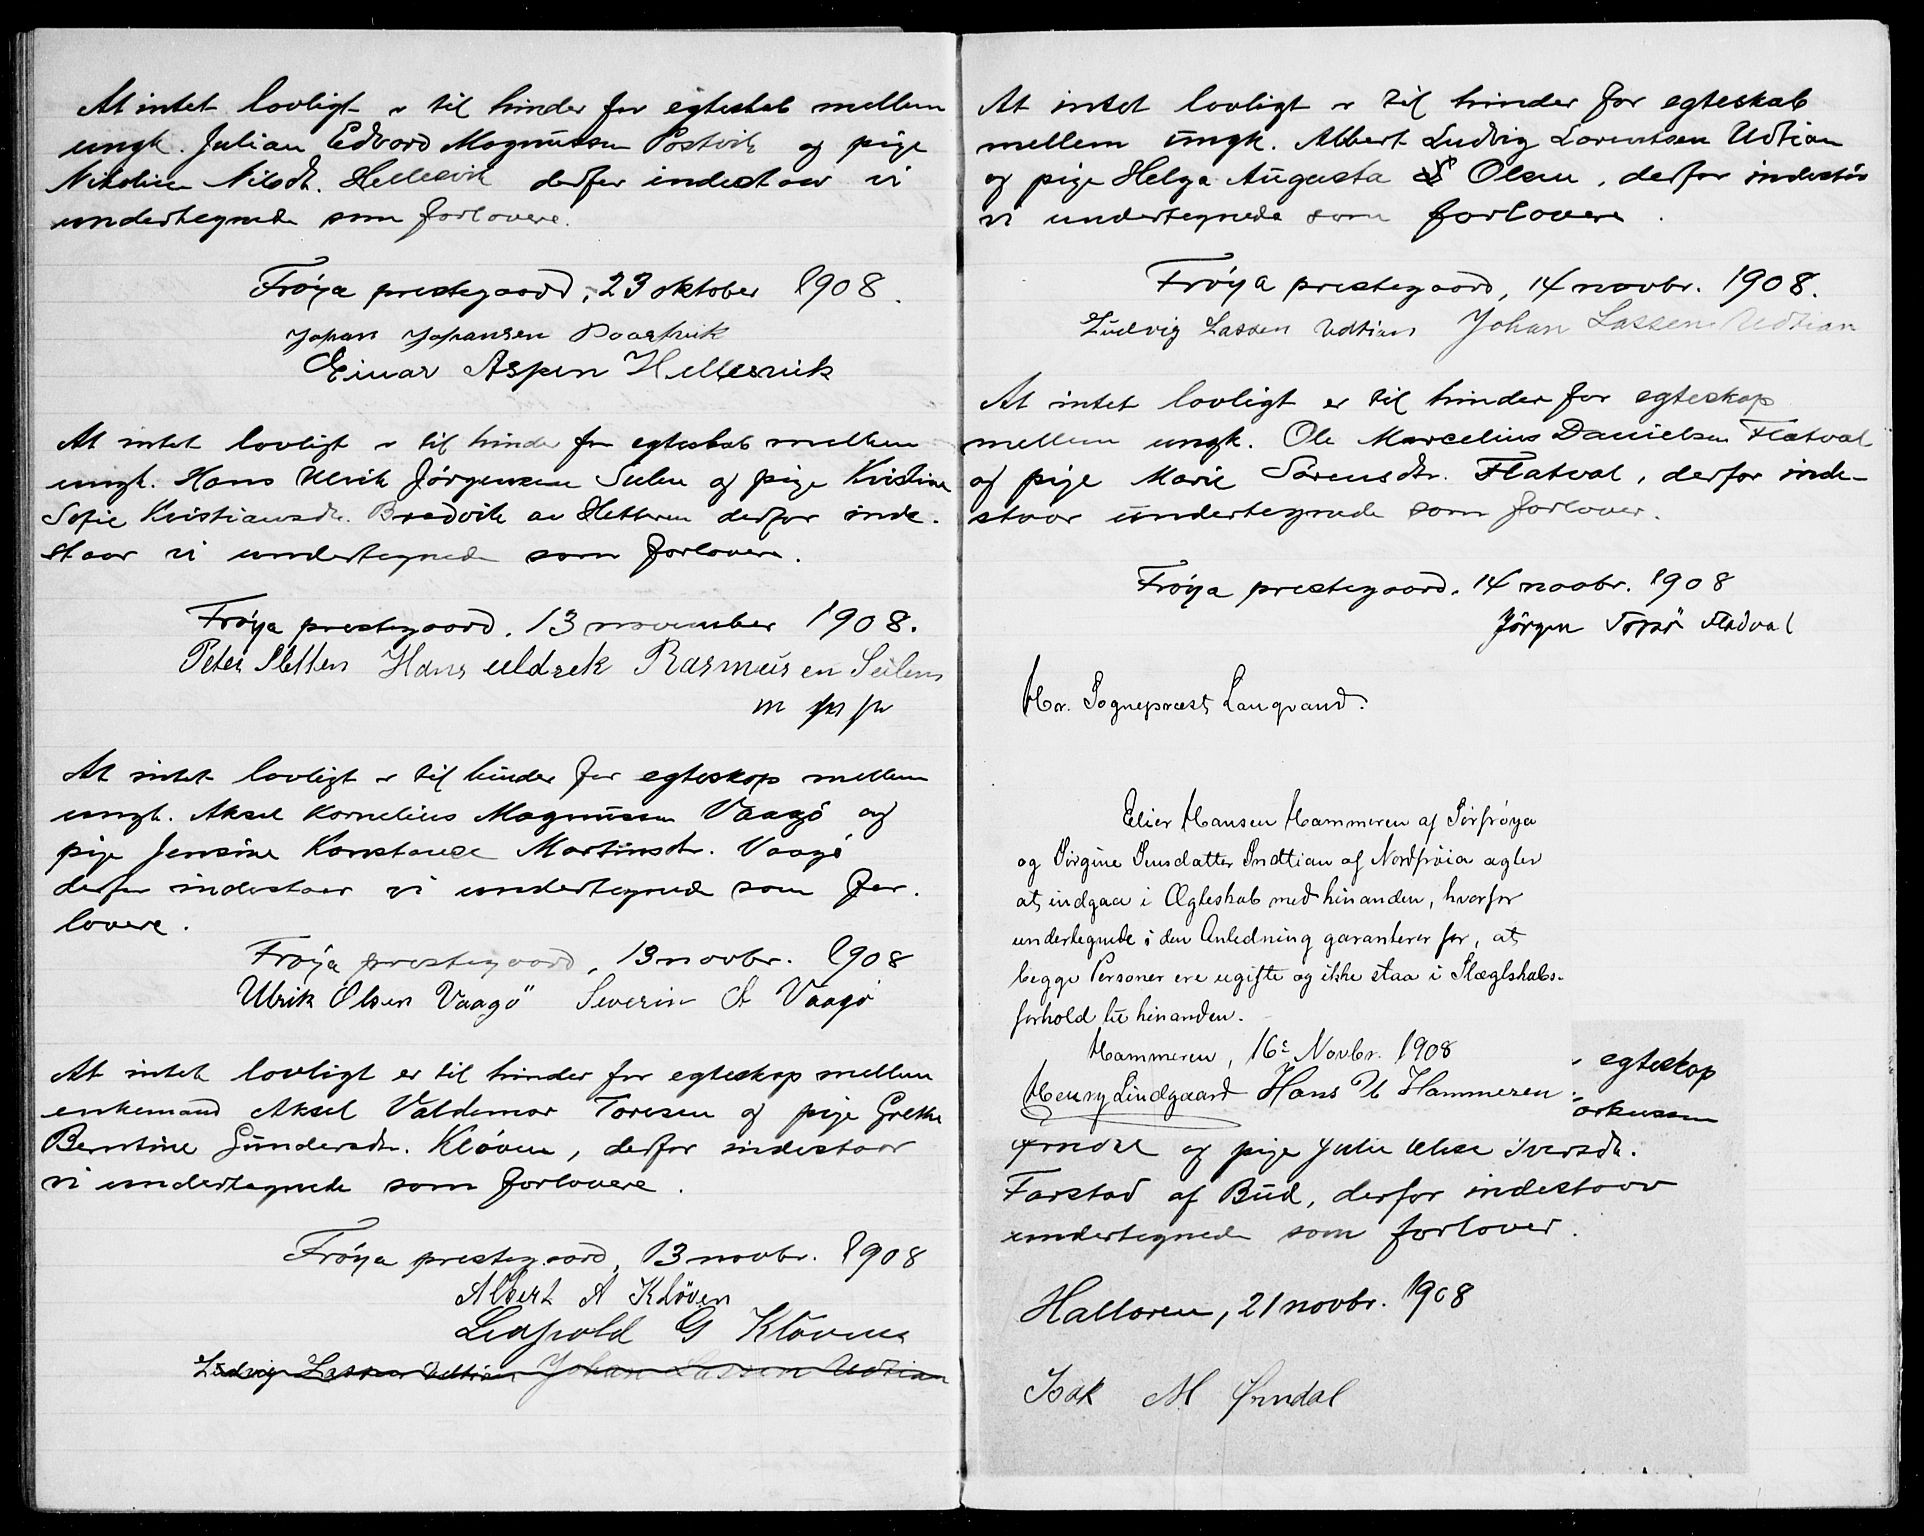 At intet lovligt r til hinder for egteskab mellem
ungk. Julian Edvard Magnussen Postvik og pige
Nikoline Nilsdt. Hellesvik derfor indestaar vi
undertegnede som forlovere.
Frøya prestegaard, 23 oktober 1908.
Johan Johansen
Einar Aspen Hellesvik
At intet lovligt r til hinder for egteskab mellem
ungk. Hans Ulrik Jørgensen Sulen og pige Kristine
Sofie Kristiansdtr. Bredvik av Hitteren derfor inde-
staar vi undertegnede som forlovere.
Frøya prestegaard, 13 november 1908.
Peter Sletten Hans uldrek Rasmusen
m p p
At intet lovligt r til hinder for egteskap mellem
ungk. Aksel Kornelius Magnussen Vaagø og
pige Jensine Konstance Martinsdtr. Vaagø
derfor indestaar vi undertegnede som for-
lovere.
Frøya prestegaard, 13 novbr. 1908
Ulrik Olsen Vaagö Severin A Vaagø
At intet lovligt er til hinder for egteskap mellem
enkemand Aksel Valdemar Toresen og pige Grethe
Berntine Gundersdtr. Kløven, derfor indestaar
vi undertegnede som forlovere.
Frøya prestegaard, 13 novbr. 1908
Albert A Kløven
Leopold G Kløven
Ludvig Lassen Udtian Johan Lassen Udtian
At intet lovligt r til hinder for egteskab
mellem ungk. Albert Ludvig Lorentsen Udtian
og pige Helga Augusta Olsen, derfor indestår
vi undertegnede som forlovere.
Frøya prestegaard, 14 novbr. 1908.
Ludvig Lassen Udtian Johan Lassen Udtian
At intet lovligt er til hinder for egteskap
mellem ungk. Ole Marcelius Danielsen Flatval
og pige Marie Sørensdtr. Flatval, derfor inde-
staar undertegnede som forlover.
Frøya prestegaard, 14 novbr. 1908
Jørgen Fladval
Hr. Sogneprest Langvand.
Elier Hansen Hammeren af Sørfrøya
og Jørgine Jensdatter Indtian af Nordfrøia agter
at indgaa i Ægteskab med hinanden, hvorfor
undertegnede i den Anledning garanterer for, at
begge Personer ere ugifte og ikke staa i Slægtskabs-
forhold til hinanden.
Hammeren, 16e Novbr. 1908
Henry Lindgaard Hans H Hammeren
egteskop
orkussen
Ørndal og pige Julie Elise Iversdtr.
Farstad af Bud, derfor indestaar
undertegnede som forlover.
Hallaren, 21 novbr. 1908
Isak M Ørndal